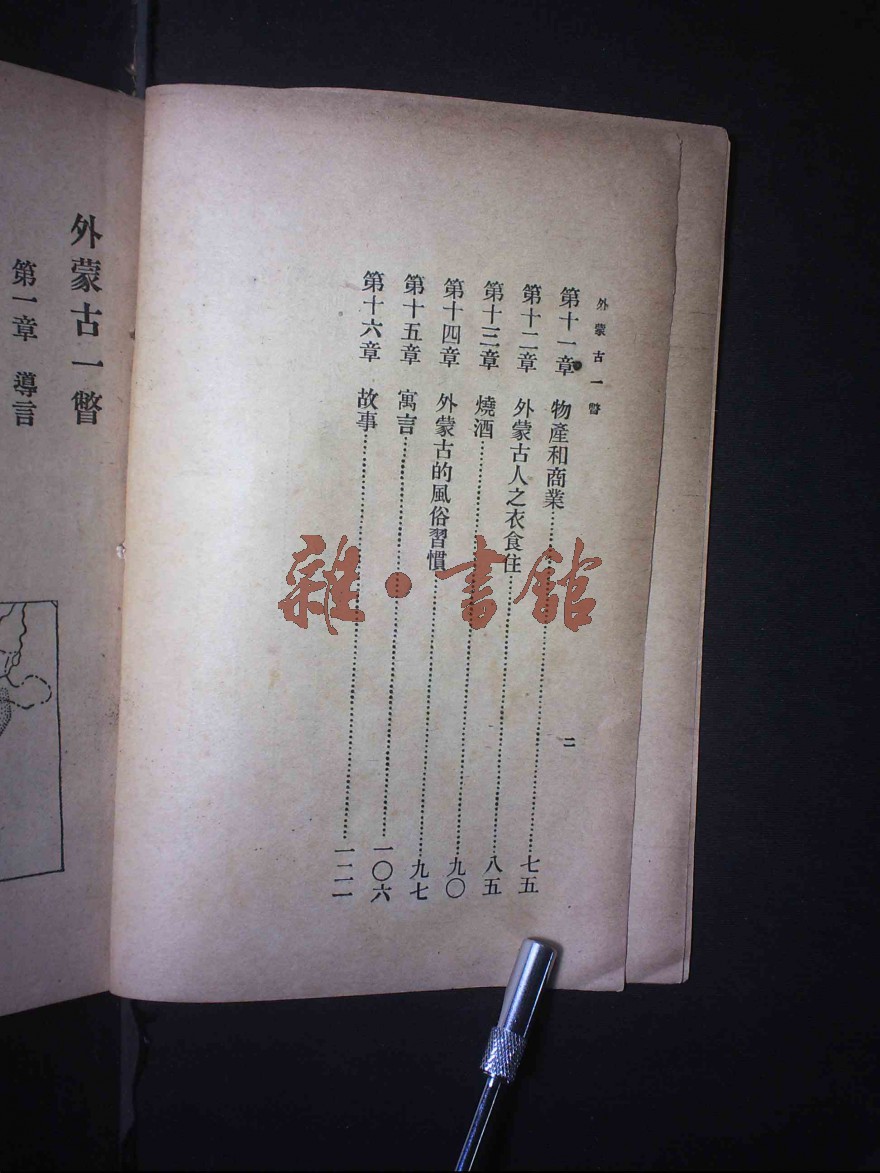 外蒙古一瞥
二
第十一章 物產和商業……七五
第十二章 外蒙古人之衣食住……八五
第十三章 燒酒……九〇
第十四章 外蒙古的風俗習慣……九七
第十五章 寓言……一〇六
第十六章 故事……一二一
外蒙古一瞥
第一章 導言
雜·書館